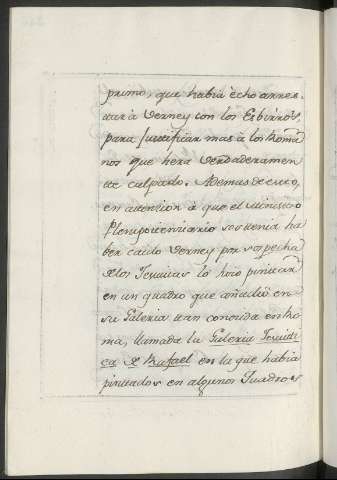 primo, que habia ècho arres-
tar à Verney con los Esbirros,
para justificar mas à los Roma
nos que hera verdaderamen
te culpado. Ademas de esto,
en attencion à que el Ministro
Plenipotentiario sostenia ha
ber caido Verney por sospecha
de los Jesuitas lo hizo pintar
en un quadro que añadiò en
su Galeria tan conocida en Ro
ma, llamada la Galeria Jesuiti
ca de Rafael en la que habia
pintados en algunos Quadros